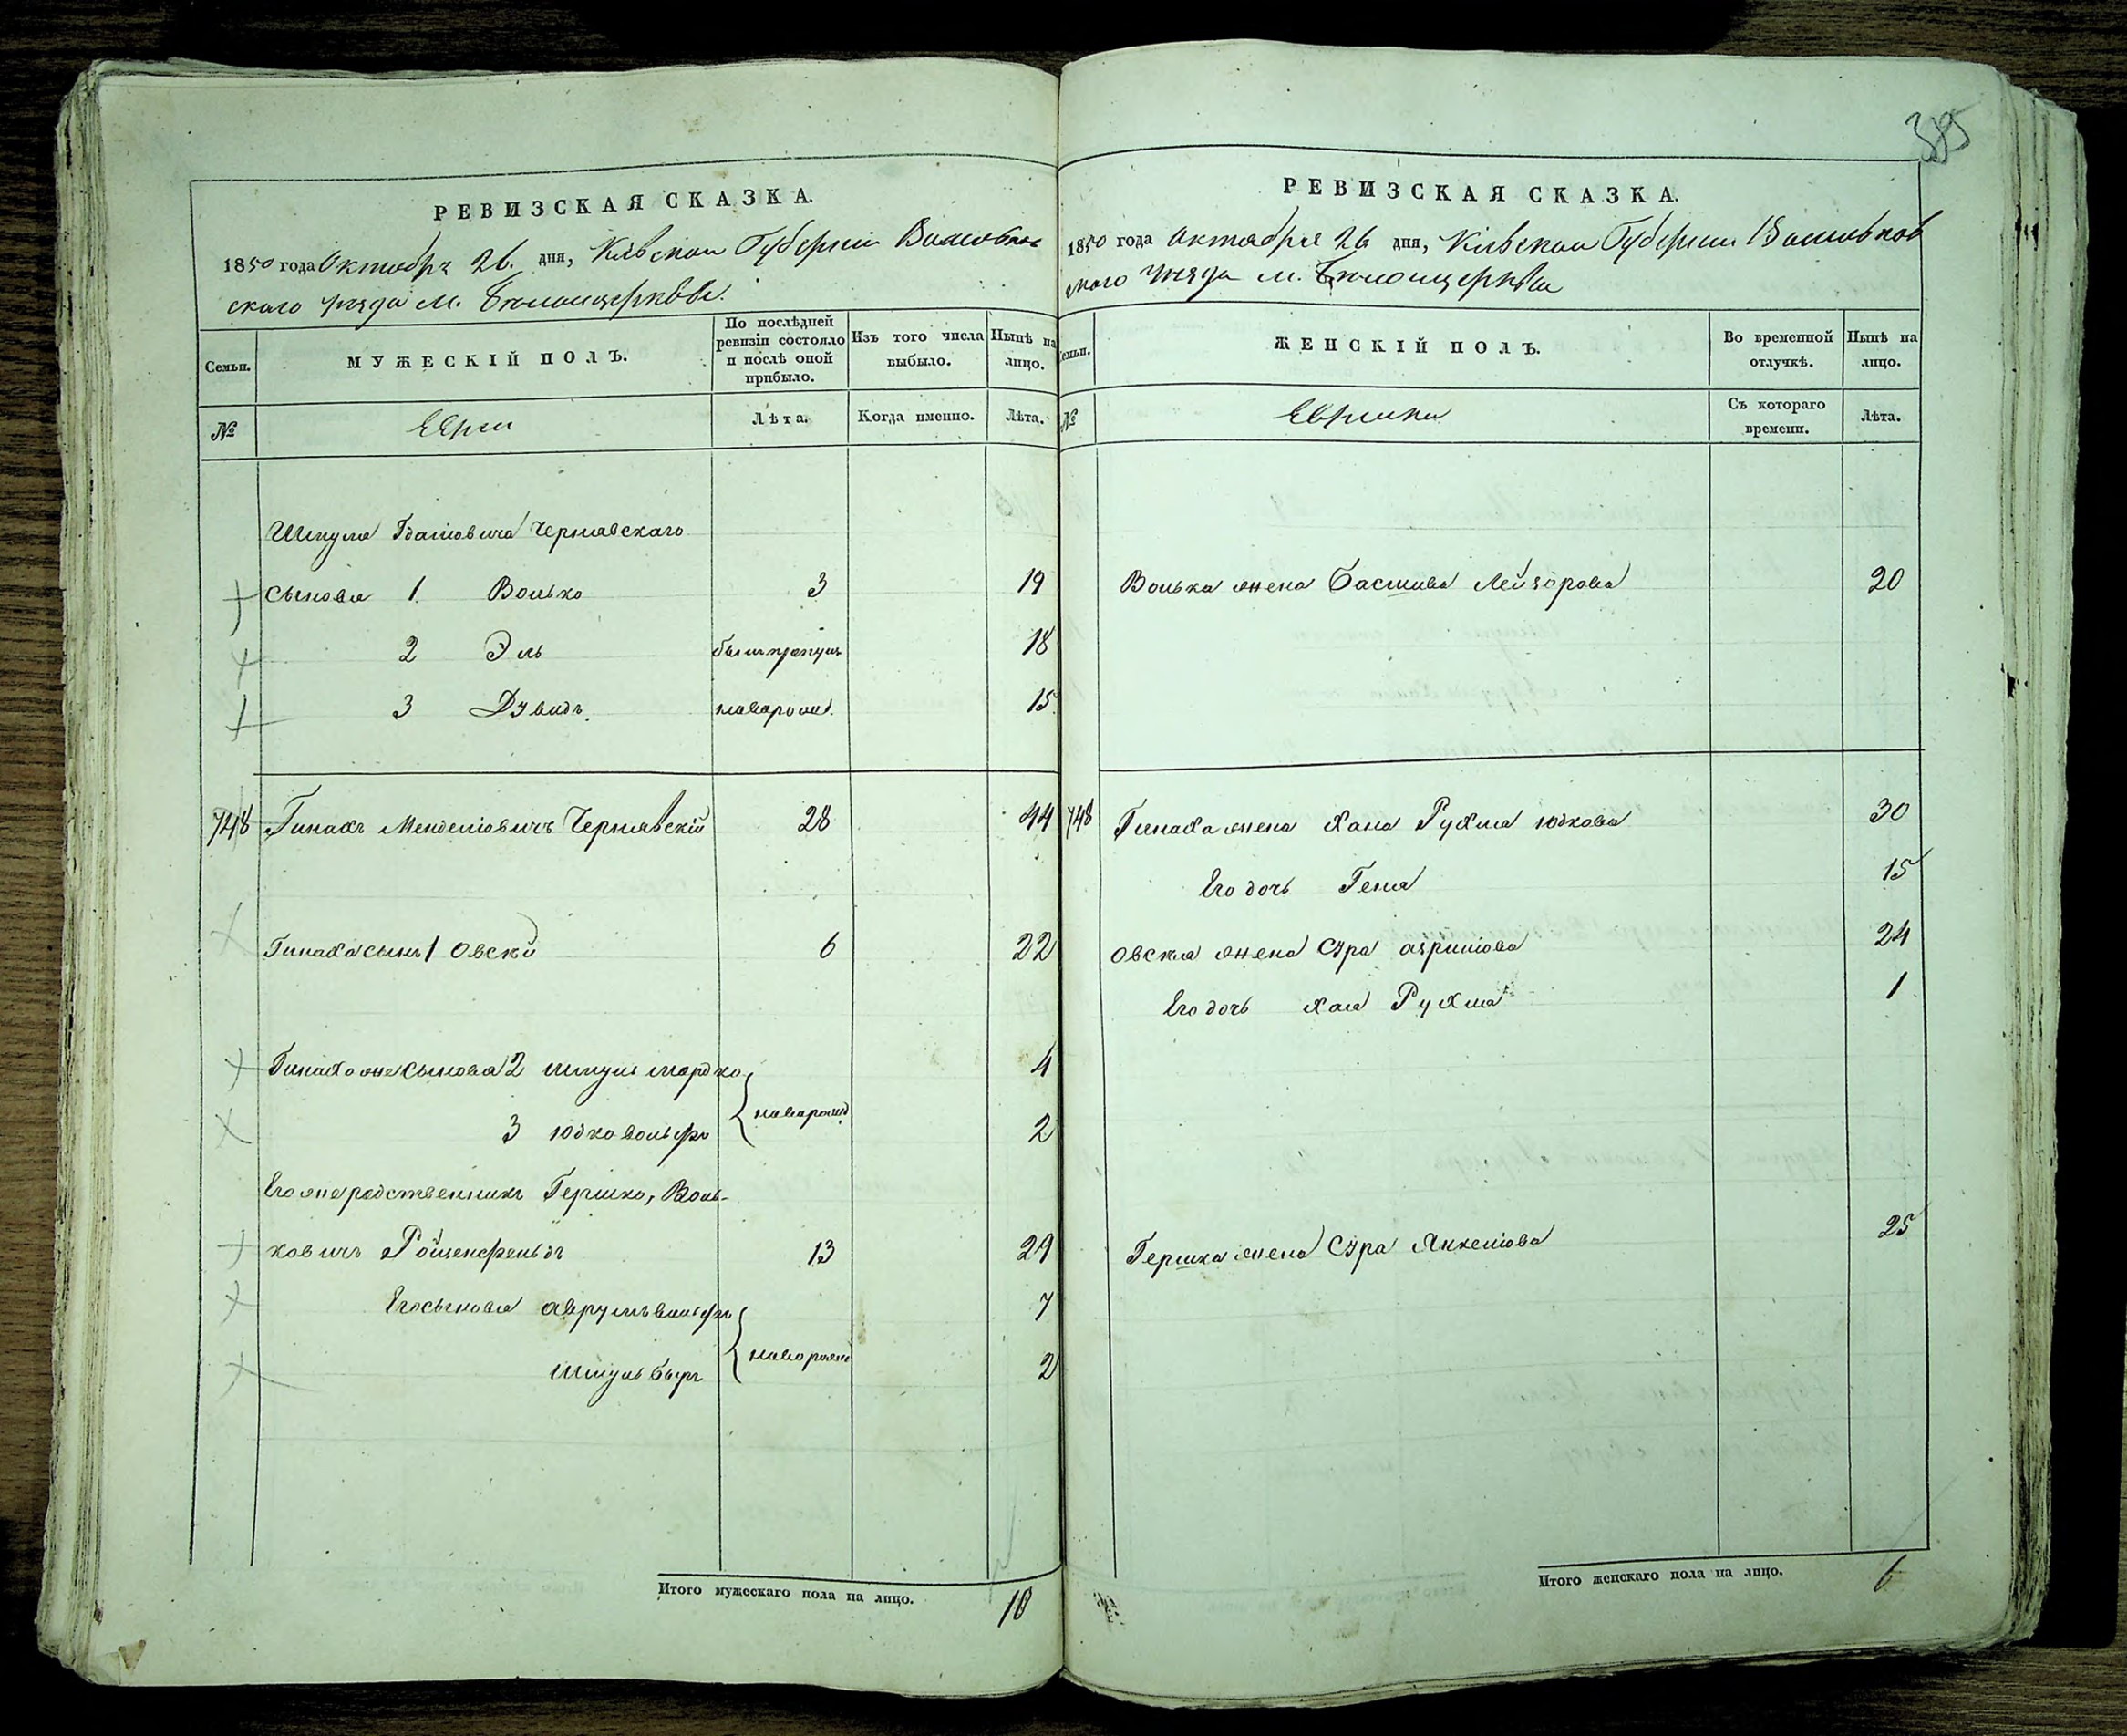 385
РЕВИЗСКАЯ СКАЗКА.
1850 года Октября 26. дня, Кіевской Губерніи Васильков
скаго уѣзда м. Бѣлоцерквы.
Семьи. МУЖЕСКІЙ ПОЛЪ. По послѣдней ревизіи состояло и послѣ оной прибыло. Изъ того числа выбыло. Нынѣ на лицо.
№ Евреи Лѣта. Когда именно. Лѣта.
Шмуля Гдаліовича Чернавскаго
сыновя 1 Волько 3 19
2 Эль былъ пропущ 18
3 Дувидъ новорожд. 15
748 Пинахъ Менделіовичъ Чернявскій 28 44
Пинаха сынъ 1 Овсей 6 22
Пинаха же сыновя 2 Шмуль Мордко 4
новорожд
3 Юдко Вольфъ 2
Его же родственникъ Гершко, Воль-
ковичъ Ройзенфельдъ 13 29
Его сыновя Аврумъ Вольфъ 7
новорожд
Шмуль Беръ 2
Итого мужескаго пола на лицо. 10
РЕВИЗСКАЯ СКАЗКА.
1850 года Октября 26 дня, Кіевской Губерніи Васильков
скаго уѣзда м. Бѣлоцерквы
Семьи. ЖЕНСКІЙ ПОЛЪ. Во временной отлучкѣ. Нынѣ на лицо.
№ Еврейки Съ котораго времени. Лѣта.
Волька жена Басшива Лейзорова 20
748 Пинаха жена Хана Рухля Юдкова 30
Его дочь Геня 15
Овсея жена Сура 24
Его дочь Хая Рухля 1
Гершка жена Сура Янкеліова 25
Итого женскаго пола на лицо. 6